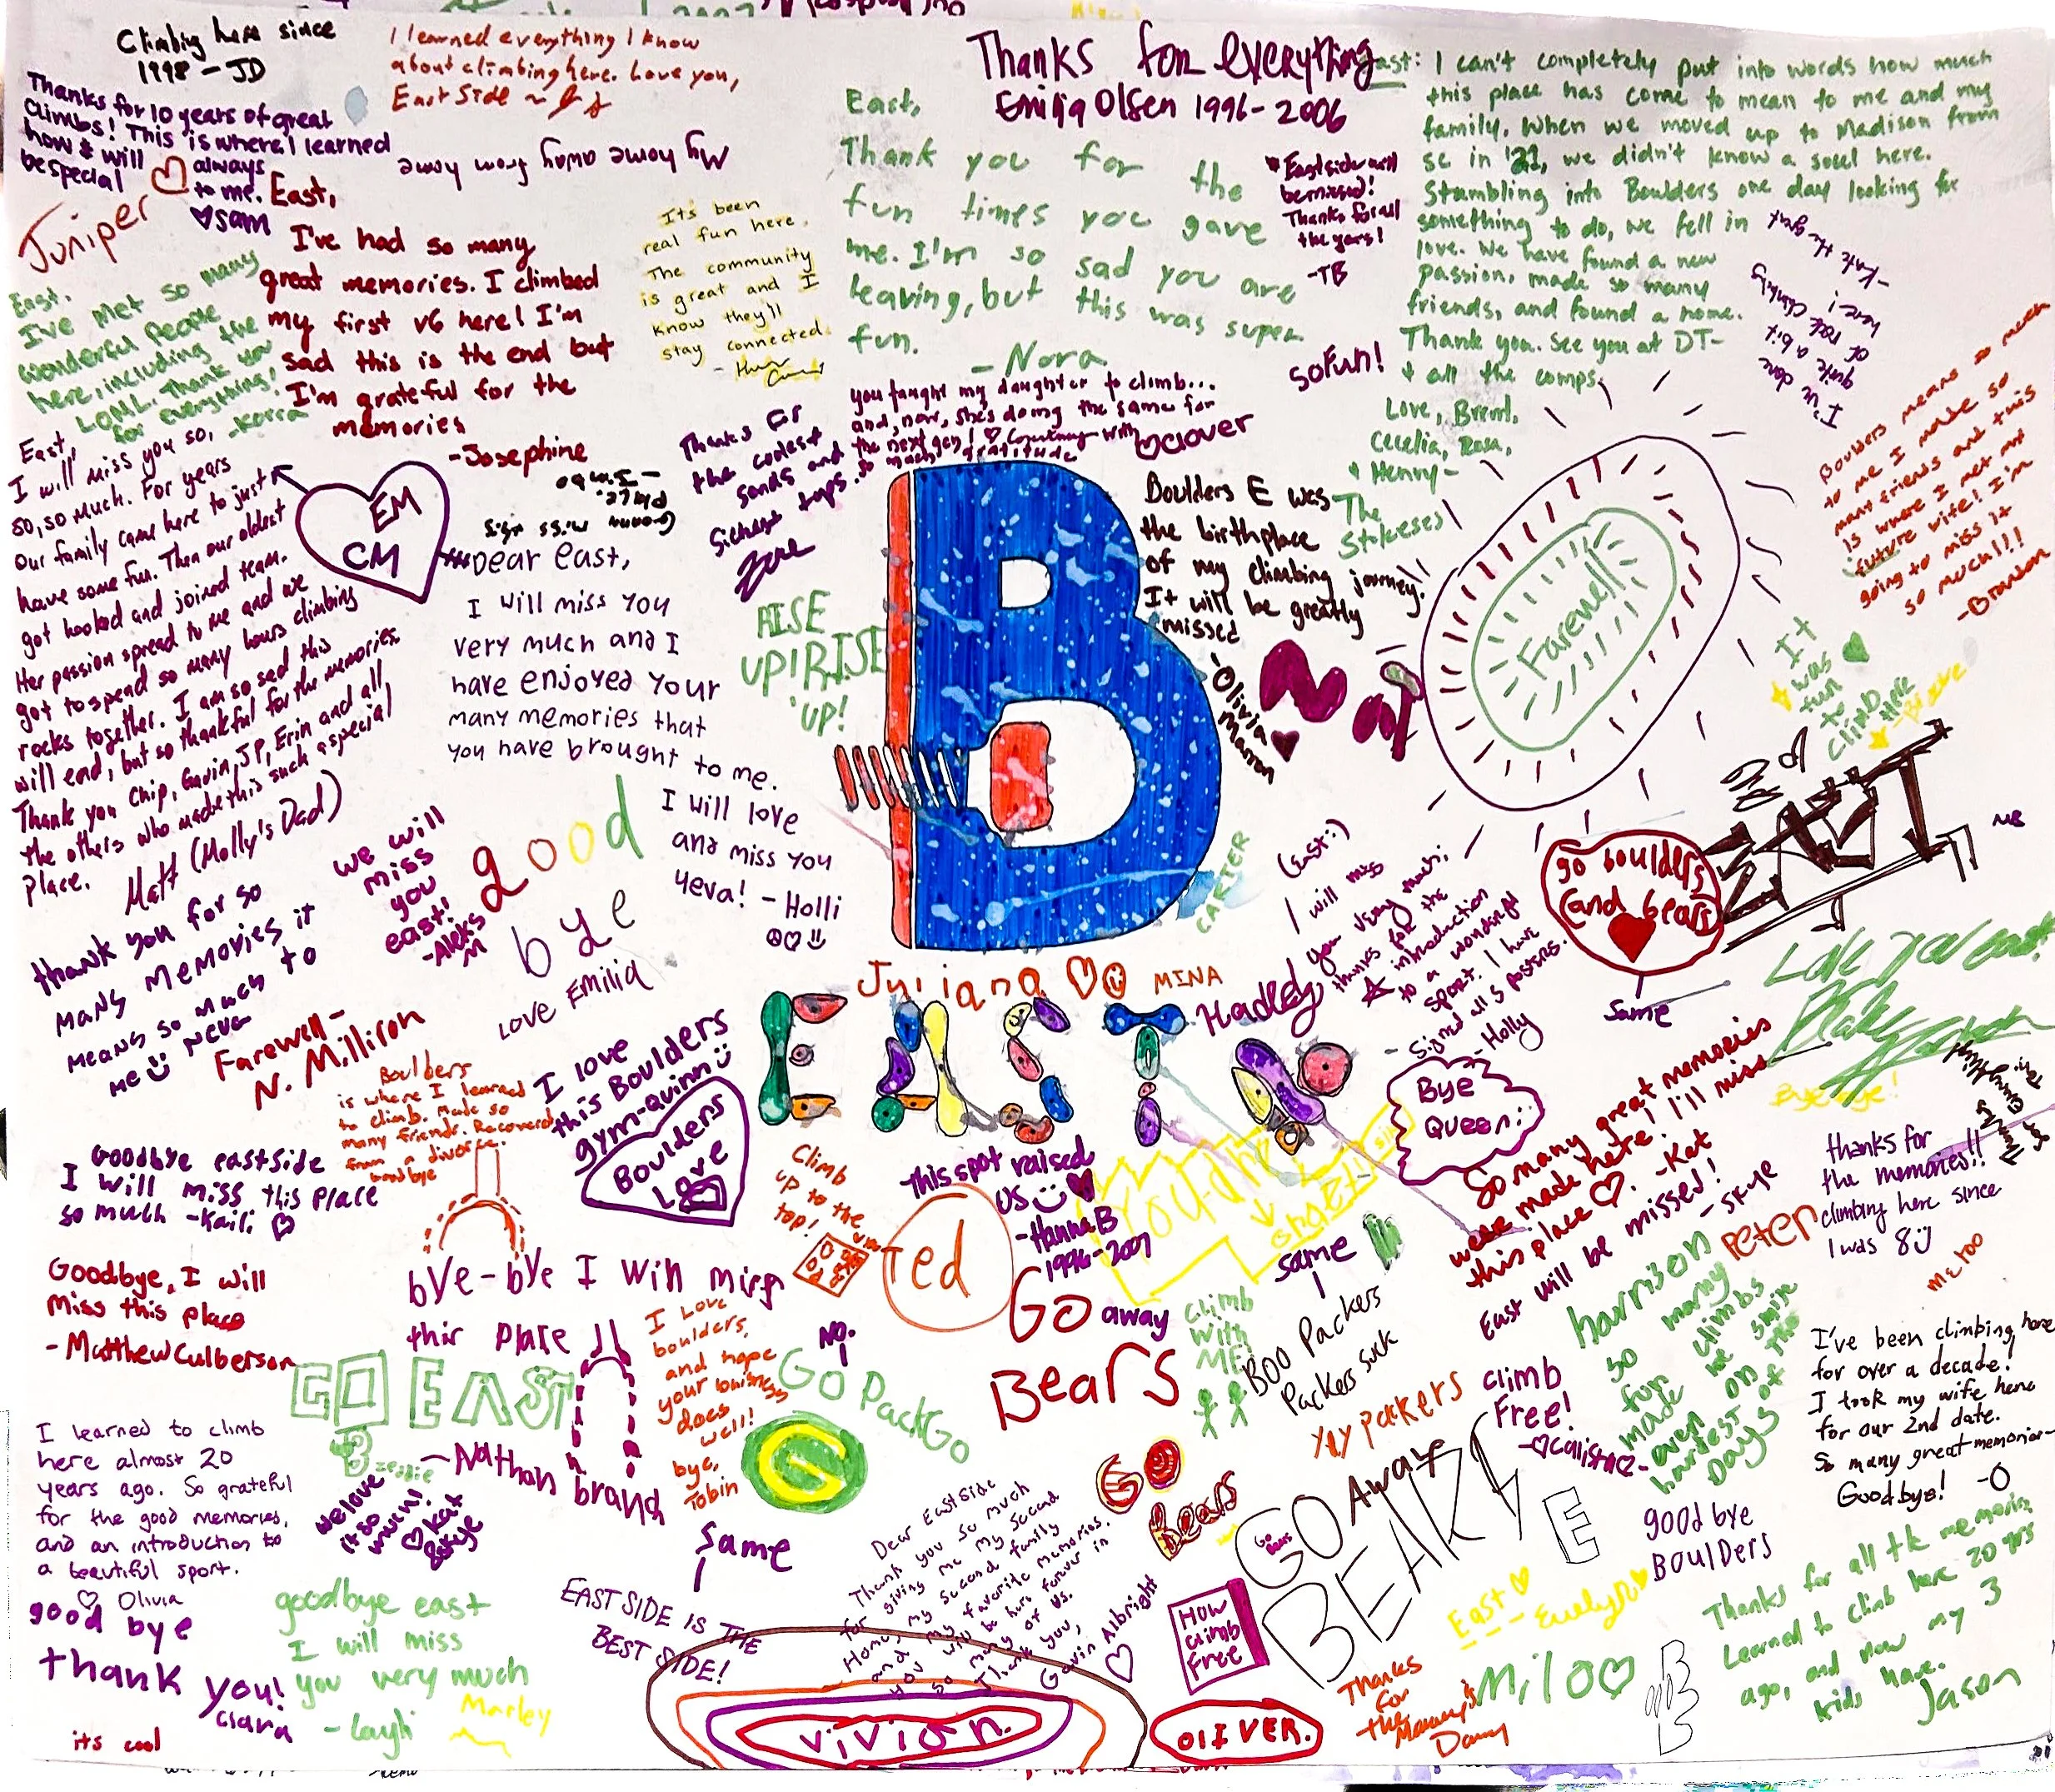 Climbing here since
1998 - JD
I learned everything I know
about climbing here. Love you,
East Side ~
Thanks for 10 years of great
climbs! This is where I learned
how & will always
be special to me.
♡ Sam
Juniper
My home away from home
Thanks for everything
Emilia Olsen 1996-2006
East,
Thank you for the
fun times you gave
me. I'm so sad you are
leaving, but this was super
fun.
- Nora
East side will
be missed!
Thanks for all
the years!
-TB
East: I can't completely put into words how much
this place has come to mean to me and my
family. When we moved up to Madison from
SC in '21, we didn't know a soul here.
Stumbling into Boulders one day looking for
something to do, we fell in
love. We have found a new
passion, made so many
friends, and found a home.
Thank you. See you at DT-
+ all the comps.
Love, Brent,
Cecelia, Rosa,
+ Henry -
The
Stokeses
I've done
quite a bit
of rock climbing
here!
- Kate the great
Boulders means so much
to me I made so
many friends and this
is where I met my
future wife! I'm
going to miss it
so much!!!
- Branson
East,
I've had so many
great memories. I climbed
my first v6 here! I'm
sad this is the end but
I'm grateful for the
memories
-Josephine
Its been
real fun here.
The community
is great and I
know they'll
stay connected.
East,
I've met so many
wonderful people
here, including the
LOML. Thank you
for everything!
-Korra
East,
I will miss you so,
so, so much. For years
our family came here to just
have some fun. Then our oldest
got hooked and joined team.
Her passion spread to me and we
got to spend so many hours climbing
rocks together. I am so sad this
will end, but so thankful for the memories.
Thank you Chip, Gavin, JP, Erin and all
the others who made this such a special
place. Matt (Molly's Dad)
EM
CM
Gonna miss this
place.
Dear east,
I will miss you
very much and I
have enjoyed your
many memories that
you have brought to me.
I will love
and miss you
4eva! - Holli
Thanks for
the coolest
sends and
sickest tops.
you taught my daughter to climb...
and, now, she's doing the same for
the next gen! ♡ Courtney with
so much gratitude
Clover
so Fun!
RISE
UP! RISE
UP!
B
Boulders E was
the birthplace
of my climbing journey!
It will be greatly
missed
- Olivia
Farewell
It
was
fun
to
climb
here
CARTER
go boulders
(and bears)
Same
thank you for so
many memories it
means so much to
me ☺ Neva
We will
miss
you
east!
-Aleks
M
good
bye
Love Emilia
Juliana ♡☺ MINA
EAST
Hadley
(East:)
I will miss
you very much!
thanks for the
introduction
to a wonderful
sport. I have
signed all 5 posters.
- Holly
Bye
Queen:
Love you east!
Bye bye!
Farewell-
N. Millison
Boulders
is where I learned
to climb. Made so
many friends. Recovered
from a divorce.
Goodbye
I love
this Boulders
gym-Quinn ☺
Boulders
Love
Goodbye eastside
I will miss this place
so much -Kaili ♡
Climb
up to the
top!
This spot raised
us ☺ ♥
-Hanna B
1996-2007
So many great memories
were made here, I'll miss
this place ♡. -Kat
East will be missed!
- Skye
thanks for
the memories!!
climbing here since
I was 8 ☺
Peter
me too
Goodbye, I will
miss this place
- Matthew Culberson
bye-bye I will miss
this place
~Nathan brand
Ted
same
Go away
Bears
Climb
with
ME!
Boo Packers
Packers suck
yay packers
harrison
So many
climbs
made me smile
even on the
hardest of
Days
I've been climbing here
for over a decade!
I took my wife here
for our 2nd date.
So many great memories-
Goodbye! -O
GO EAST
I Love
boulders,
and hope
your business
does
well!
bye,
Tobin
NO.
GO Pack GO
G
climb
Free!
-♡Calista♡-
I learned to climb
here almost 20
years ago. So grateful
for the good memories,
and an introduction to
a beautiful sport.
♡ Olivia
we love
it so
much!
♡ Kat
& Skye
Same
EAST SIDE IS THE
BEST SIDE!
Dear East Side
Thank you so much
for giving me my second
Home, my second family
and my favorite memories.
you will be here forever in
so many of us.
Thank you,
Gavin Albright
♡
GO
Bears
GO Away
BEARS
Go
Bears
E
good bye
BOULDERS
good bye
thank you!
Clara
goodbye east
I will miss
you very much
- Layli
Marley
its cool
Vivian.
How
climb
free
OLIVER.
East ♡
- Evelyn ♡
Milo ♡
Thanks
for
the
Danny
Thanks for all the memories
Learned to climb here 20 yrs
ago, and now my 3
kids have.
Jason